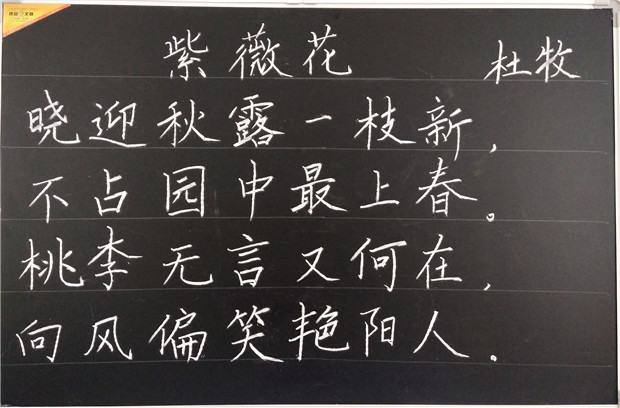 紫薇花 杜牧
晓迎秋露一枝新，
不占园中最上春。
桃李无言又何在，
向风偏笑艳阳人.